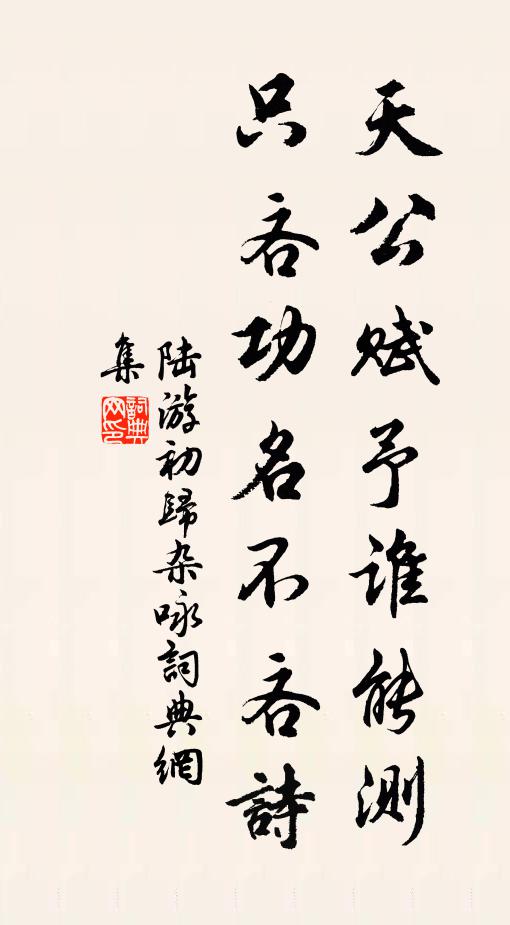 天公赋予谁能测
只吝功名不吝詩
陆游初歸杂咏詞典網
集
詞典网印